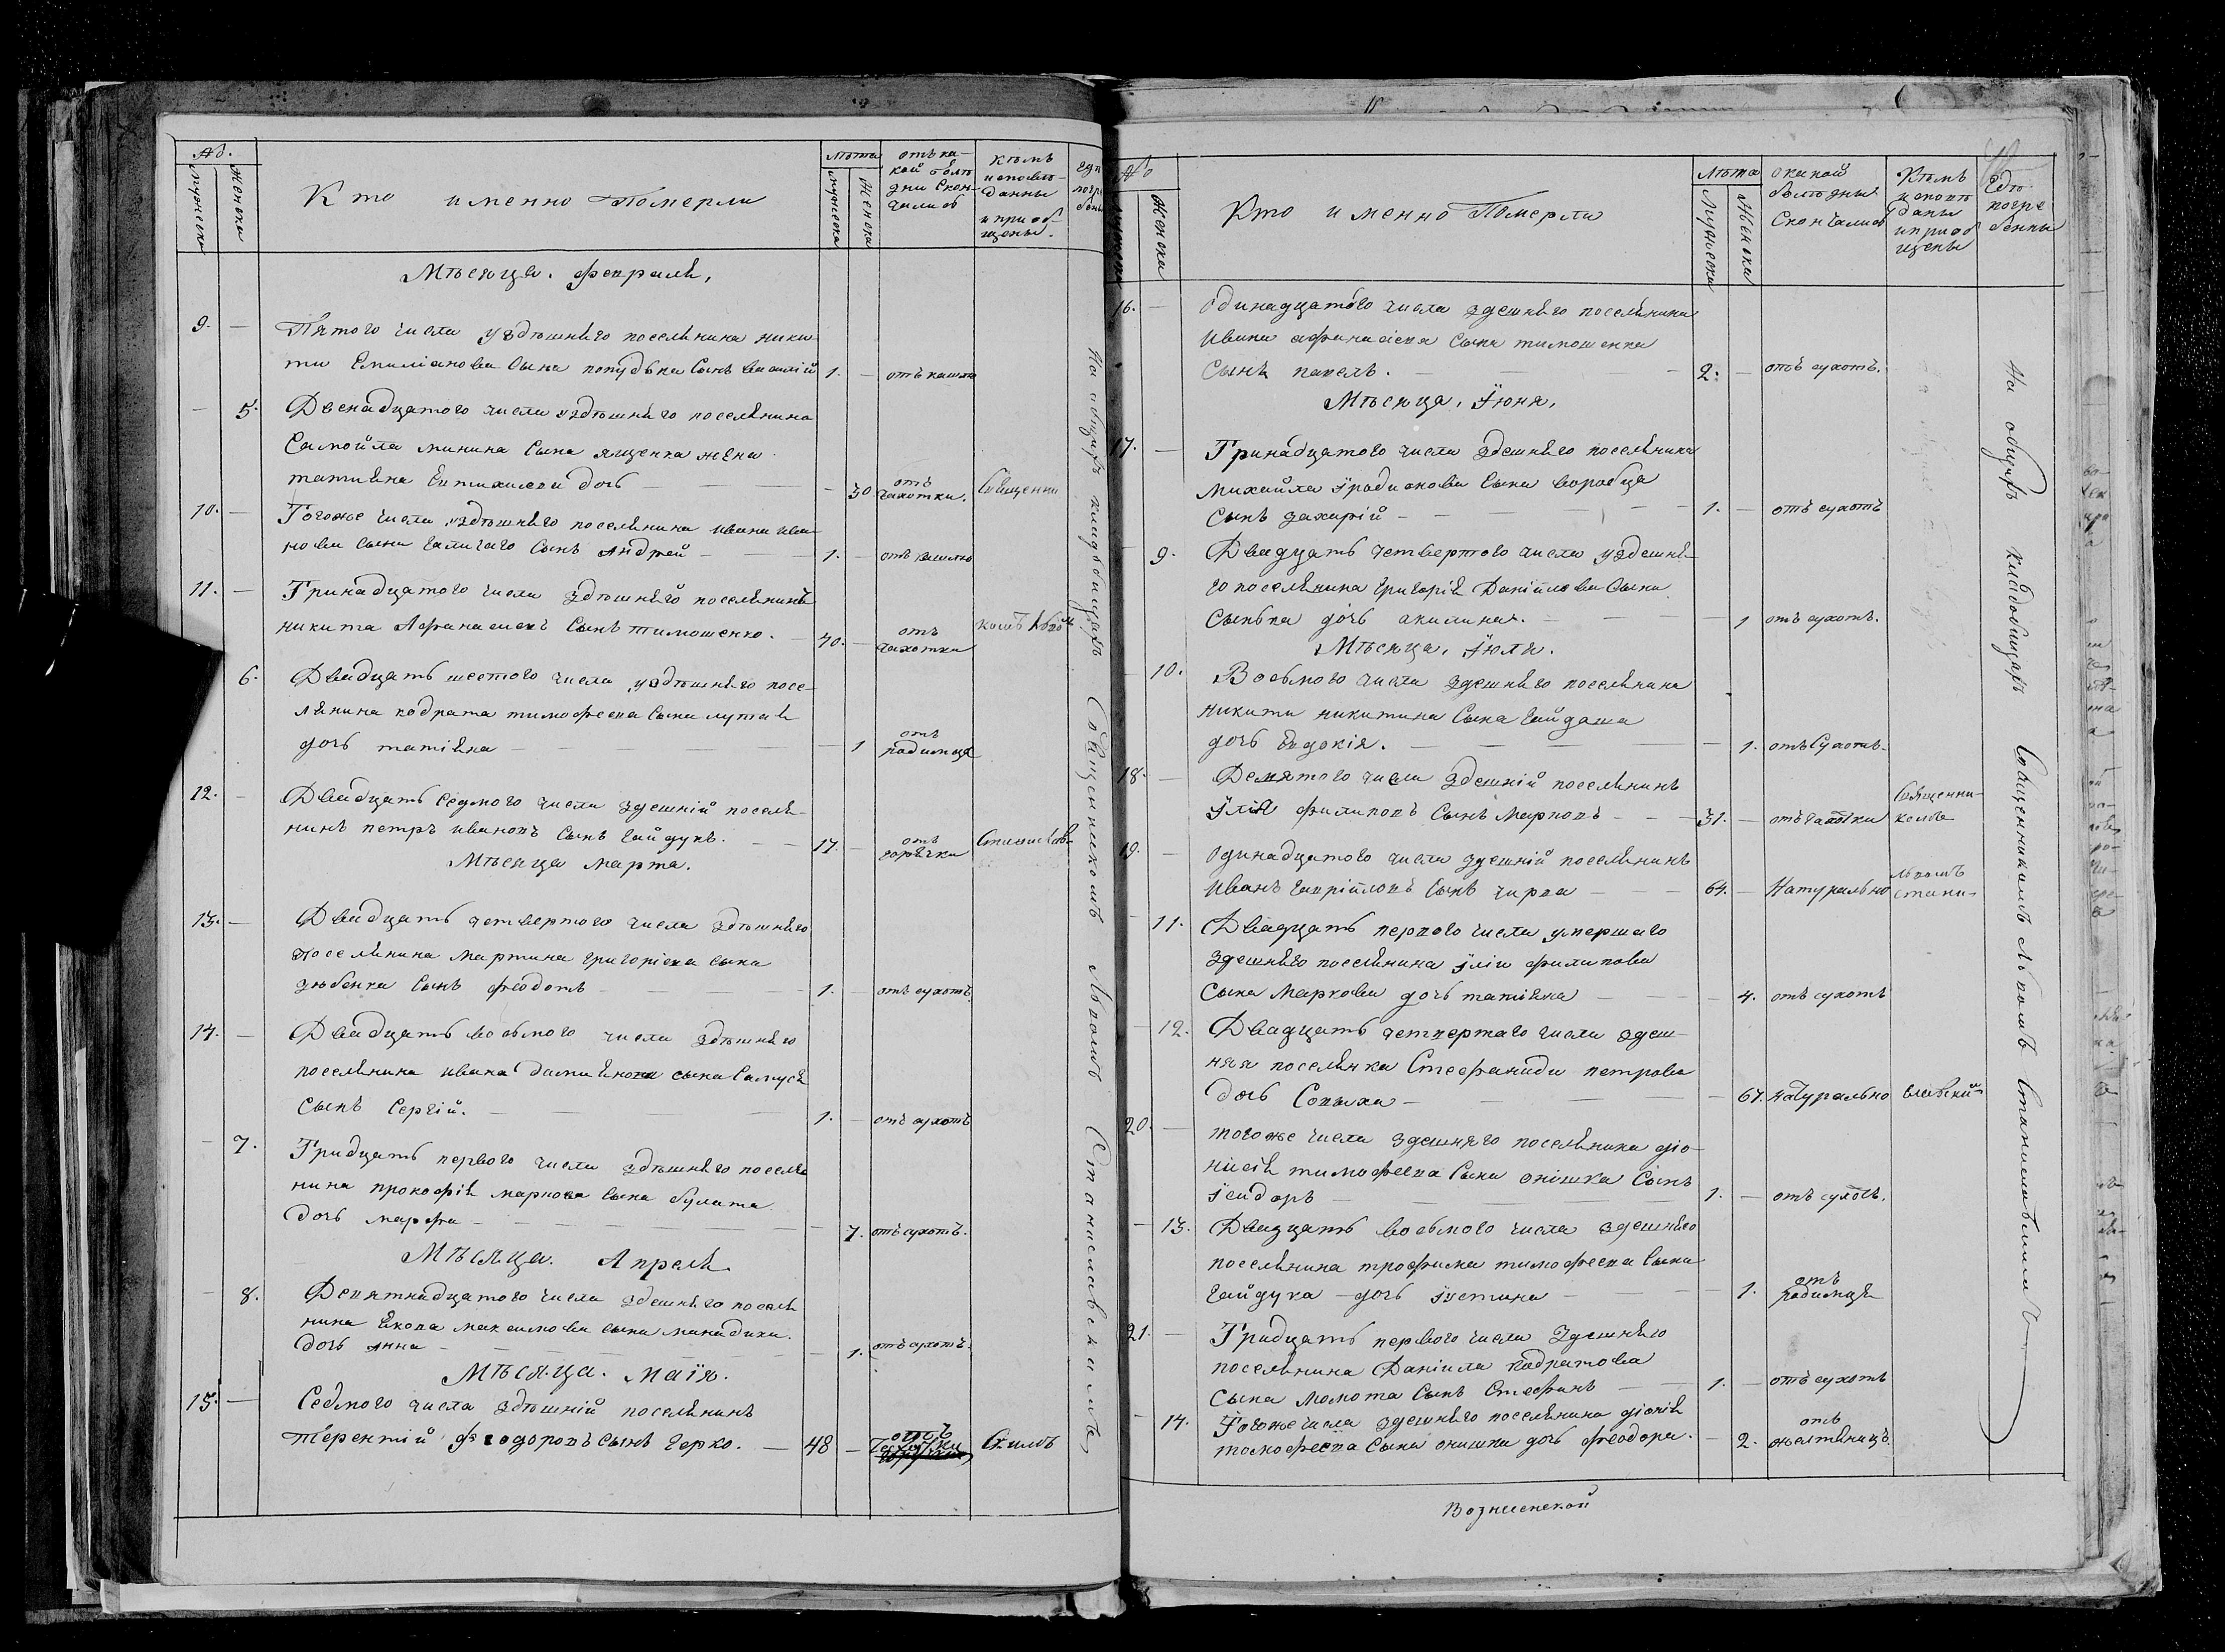 №.
мужеска
женска
Кто именно Померли
лѣта
мужеска
женска
отъ ка-
кой болѣ
зни Скон-
чались
кѣмъ
исповѣ-
данны
и приоб-
щены.
гдѣ
погре
бены
Мѣсяца. февраля,
9. — Пятого числа уздѣшняго поселянина ники-
ты Емиліанова сына попудька Сынъ василій 1. — отъ кашлю
— 5. Двенадцатого числа уздѣшняго поселянина
Самойла минина Сына ященка жена
татіяна Евтихиева дочь — 30 отъ чахотки. Священни
10. — Тогожъ числа, уздѣшняго поселянина ивана ива-
нова сына галичаго Сынъ Андрей — 1. — отъ кашлю
11. — Тринадцатого числа здѣшняго поселянинъ
никита Афанасиевъ Сынъ тимошенко. 40. — отъ чахотки
6. Двадцать шестого числа, уздѣшняго посе-
лянина кодрата тимофеева Сына лутая
дочь татіяна — 1 отъ родимца
12. — Двадцать седмого числа здешній поселя-
нинъ петръ ивановъ Сынъ гайдукъ. — 17. — отъ горячки
Мѣсяца марта.
13. — Двадцать четвертого числа здѣшняго
поселянина мартина григоріева сына
зюбенка Сынъ феодотъ — 1. — отъ сухотъ
14. — Двадцать восьмого числа здѣшняго
поселянина ивана даміянова сына Самуся
сынъ Сергій. — 1. — отъ сухотъ
— 7. Тридцать первого числа здѣшняго поселя
нина прокофія маркова сына булата
дочь марфа — 7. отъ сухотъ.
Мѣсяца. Апреля.
— 8. Девятнадцатого числа здешняго поселя
нина Якова максимова сына манадики.
дочь анна — 1. отъ сухотъ.
Мѣсяца. маія.
15. — Седмого числа здѣшній поселянинъ
терентій феодоровъ сынъ черко. — 48 — отъ чахотки
На общемъ кладбищѣ Священникомъ Львомъ Станиславскимъ
№
мужеска
женска
Кто именно Померли
лѣта
Мужеска
Женска
Окакой
болѣзны
Скончались
Кѣмъ
исповѣ
даны
и приоб
щены
Гдѣ
погре
бенны
16. — Одинадцатого числа здешняго поселянина
ивана афанасіева Сына тимошенка
Сынъ павелъ. — 2. — отъ сухотъ.
Мѣсяца, Іюня,
17. — Тринадцатого числа здешняго поселянина
михайла Іродионова Сына воробца
сынъ захарій — 1. — отъ сухотъ
9. Двадцать четвертого числа уздешня-
го поселянина григорія Даніилова Сына
Сынька дочь акилина. — 1 отъ сухотъ.
Мѣсяца, Іюля.
10. Восьмого числа здешняго поселянина
никиты никитина Сына гайдаша
дочь Евдокія. — 1. отъ Сухотъ.
18. — Девятого числа здешній поселянинъ
Ілія филиповъ Сынъ Марковъ — 31. — отъ чахотки Священни-
комъ
19. — Одинадцатого числа здешній поселянинъ
Иванъ гавріиловъ Сынъ чирва — 64. — Натурально львомъ
стани-
— 11. Двадцать первого числа умершаго
здешняго поселянина Іліи филипова
Сына Маркова дочь татіяна — 4. отъ сухотъ
— 12. Двадцать четвертаго числа здеш-
няя поселянка Стефанида петрова
дочь Сопыха — 67. Натурально славский
20. — тогожъ числа здешняго поселянина діо-
нисія тимофеева Сына онішка Сынъ
Ісидоръ — 1. — отъ сухотъ.
— 13. Двадцать восьмого числа здешняго
поселянина трофима тимофеева Сына
гайдука — дочь Іустина — 1. отъ родимця
21. — Тридцать первого числа Здешняго
поселянина Даніила кодратова
Сына момота Сынъ Стефанъ — 1. — отъ сухотъ
— 14. Тогожъ числа здешняго поселянина діонія
тимофеева Сына онишка дочь феодора. — 2. отъ желтяницъ.
На общемъ кладбищѣ Священникомъ Львомъ Станиславскимъ
Вознисенской